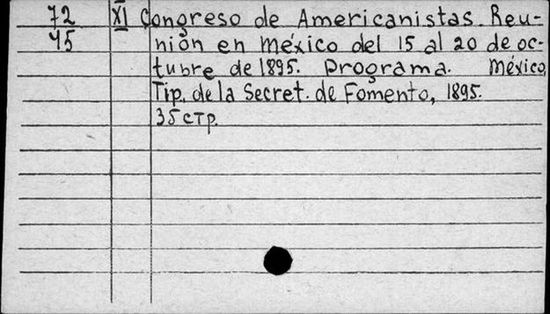 72 XI Congreso de Americanistas. Reu-
45 nión en México del 15 al 20 de oc-
tubre de 1895. Programa. México,
Tip. de la Secret. de Fomento, 1895.
35 стр.